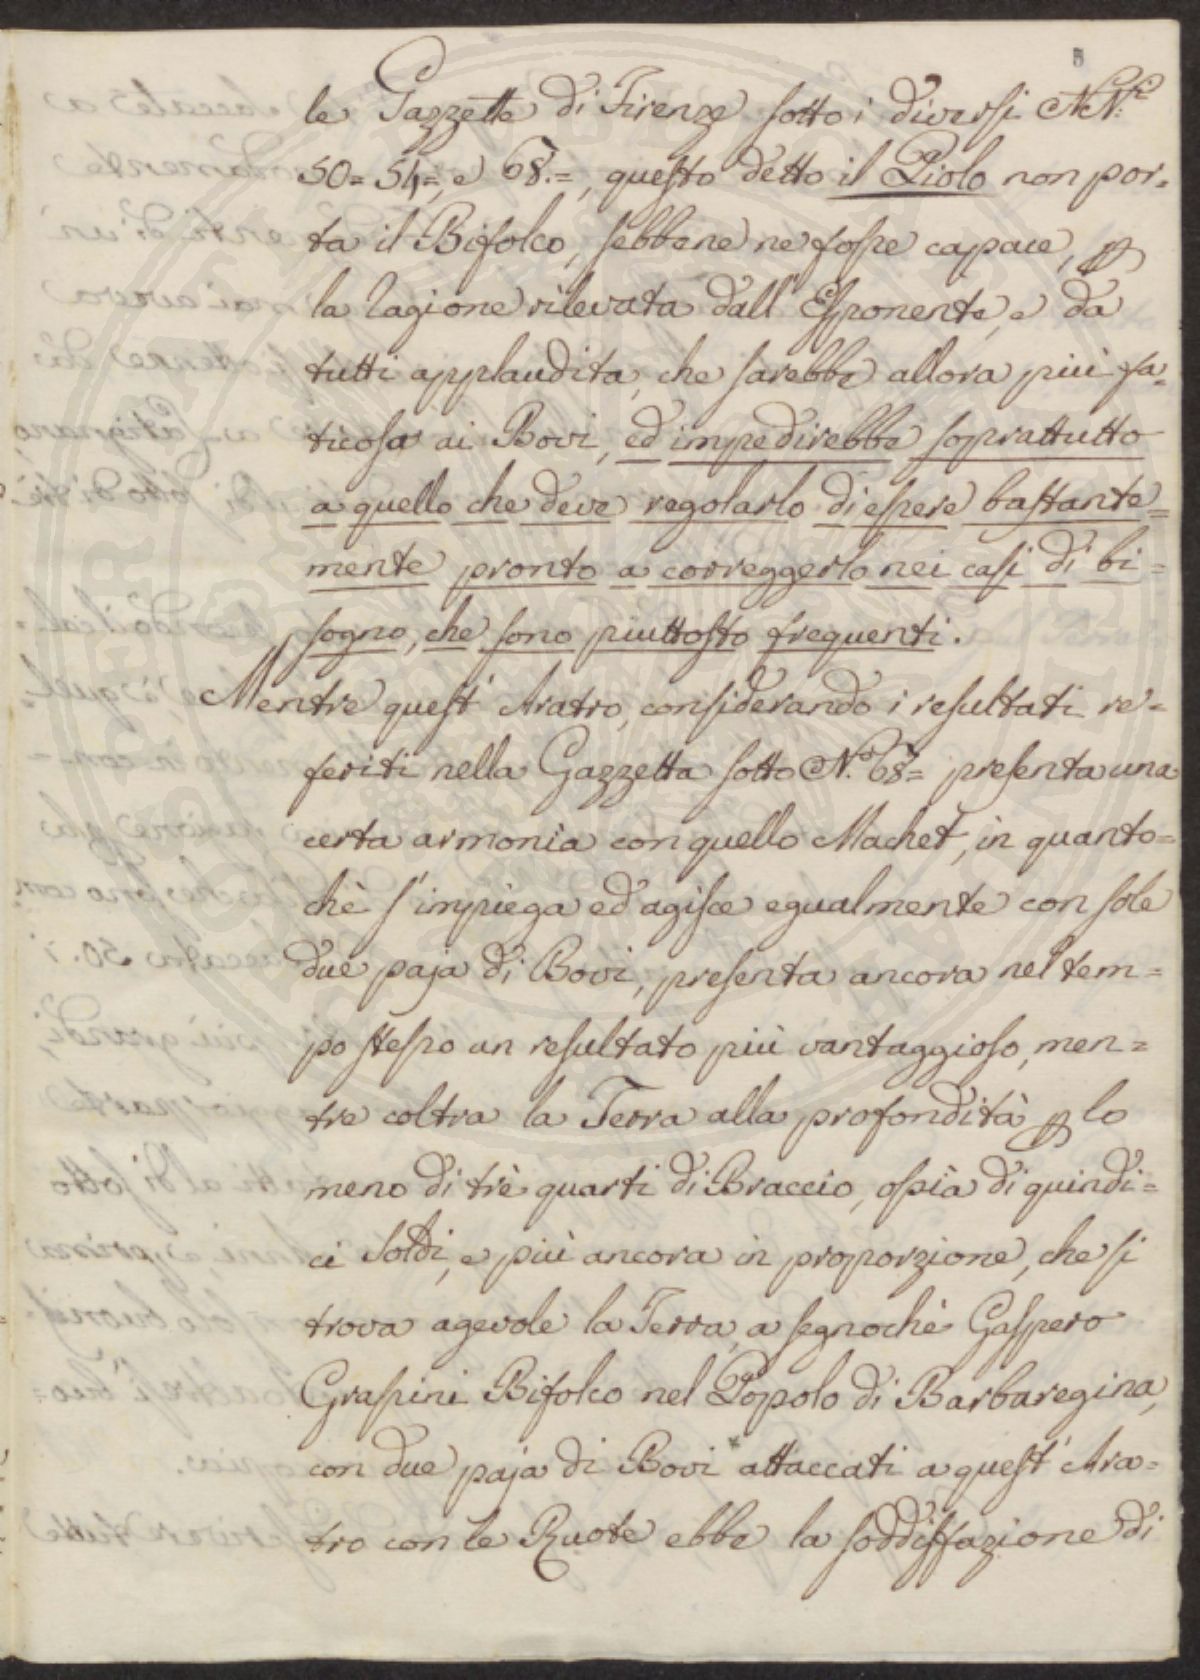 5
le Gazzette di Firenze sotto i diversi NN.ri
50= 54=, e 68.=, questo detto il Piolo non por=
ta il Bifolco, sebbene ne fosse capace, p
la ragione rilevata dall' Esponente, e da
tutti applaudita, che sarebbe allora più fa=
ticosa ai Bovi, ed impedirebbe soprattutto
a quello che deve regolarlo di essere bastante=
mente pronto a correggerlo nei casi di bi=
sogno, che sono piuttosto frequenti.
Mentre quest' Aratro, considerando i resultati re=
feriti nella Gazzetta sotto N.º 68= presenta una
certa armonìa con quello Machet, in quanto=
chè s' impiega ed agisce egualmente con sole
due paja di Bovi, presenta ancora nel tem=
po stesso un resultato più vantaggioso, men=
tre coltra la Terra alla profondità p lo
meno di trè quarti di Braccio, ossia di quindi=
ci Soldi, e più ancora in proporzione, che si
trova agevole la Terra, a segnochè Gaspero
Grassini Bifolco nel Popolo di Barbaregina,
con due paja di Bovi attaccati a quest' Ara=
tro con le Ruote ebbe la soddisfazione di